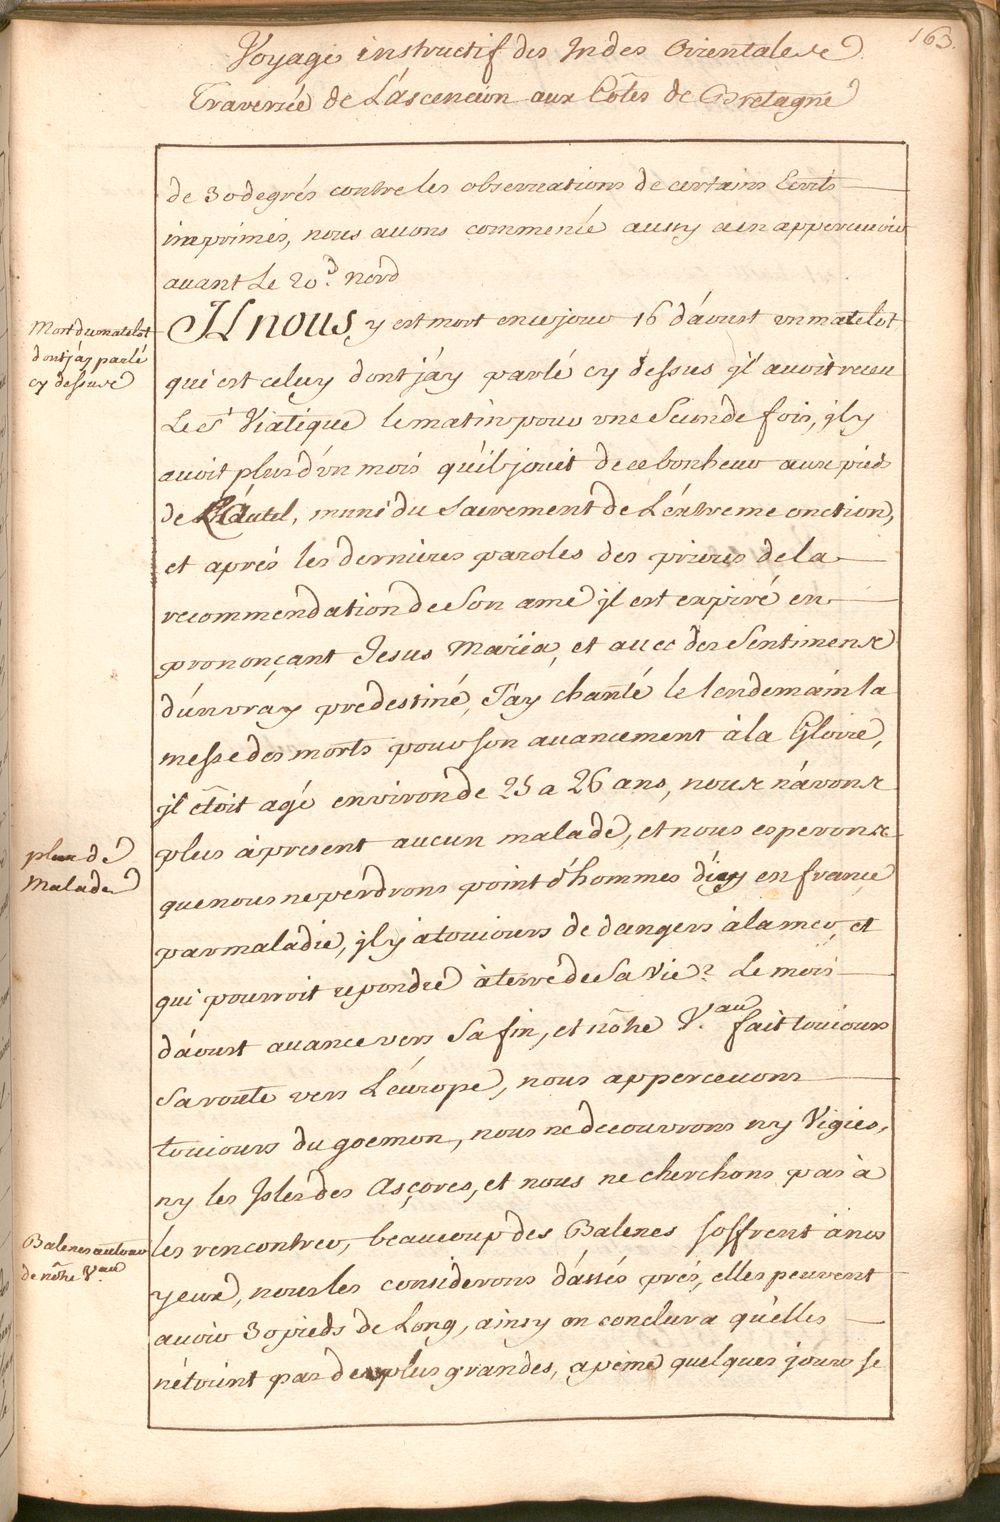 163.
Voyage instructif des Indes Orientales
Traversée de L'ascencion aux Côtes de Bretagne
de 30 degrés contre les observations de certains Ecrits
imprimés, nous auons commencé aussy a en apperceuoir
auant Le 20.d Nord
Mort du matelot
dont j'ay parlé
cy dessus
Il nous y est mort en ce jour 16 d'aoust un matelot
qui est celuy dont j'ay parlé cy dessus il auoit receu
Le St Viatique le matin pour une Seconde fois, il y
auoit plus d'un mois qu'il jouit de ce bonheur aux pieds
de L'autel, muni du Sacrement de L'extreme onction,
et aprés les dernieres paroles des prieres de la
recommendation de Son ame il est expiré en
prononçant Jesus Maria, et auec des Sentimens
d'un vray predestiné, J'ay chanté le lendemain la
messe des morts pour son auancement à la Gloire,
il étoit agé environ de 25 a 26 ans, nous n'avons
plus de
Malades
plus à present aucun malade, et nous esperons
que nous ne perdrons point d'hommes d'icy en france
par maladie, il y a touiours de dangers à la mer, et
qui pourroit repondre à terre de Sa Vie? Le mois
d'aoust auance vers Sa fin, et nôtre V.au fait touiours
Sa route vers L'europe, nous apperceuons
touiours du goemon, nous ne decouvrons ny Vigies,
ny les Isles des Açores, et nous ne cherchons pas à
Balenes autour
de nôtre V.au
les rencontrer, beaucoup des Balenes s'offrent à nos
yeux, nous les considerons d'assés prés, elles peuvent
auoir 30 pieds de Long, ainsy on conclura qu'elles
n'étoient pas des plus grandes, a peine quelques jours se